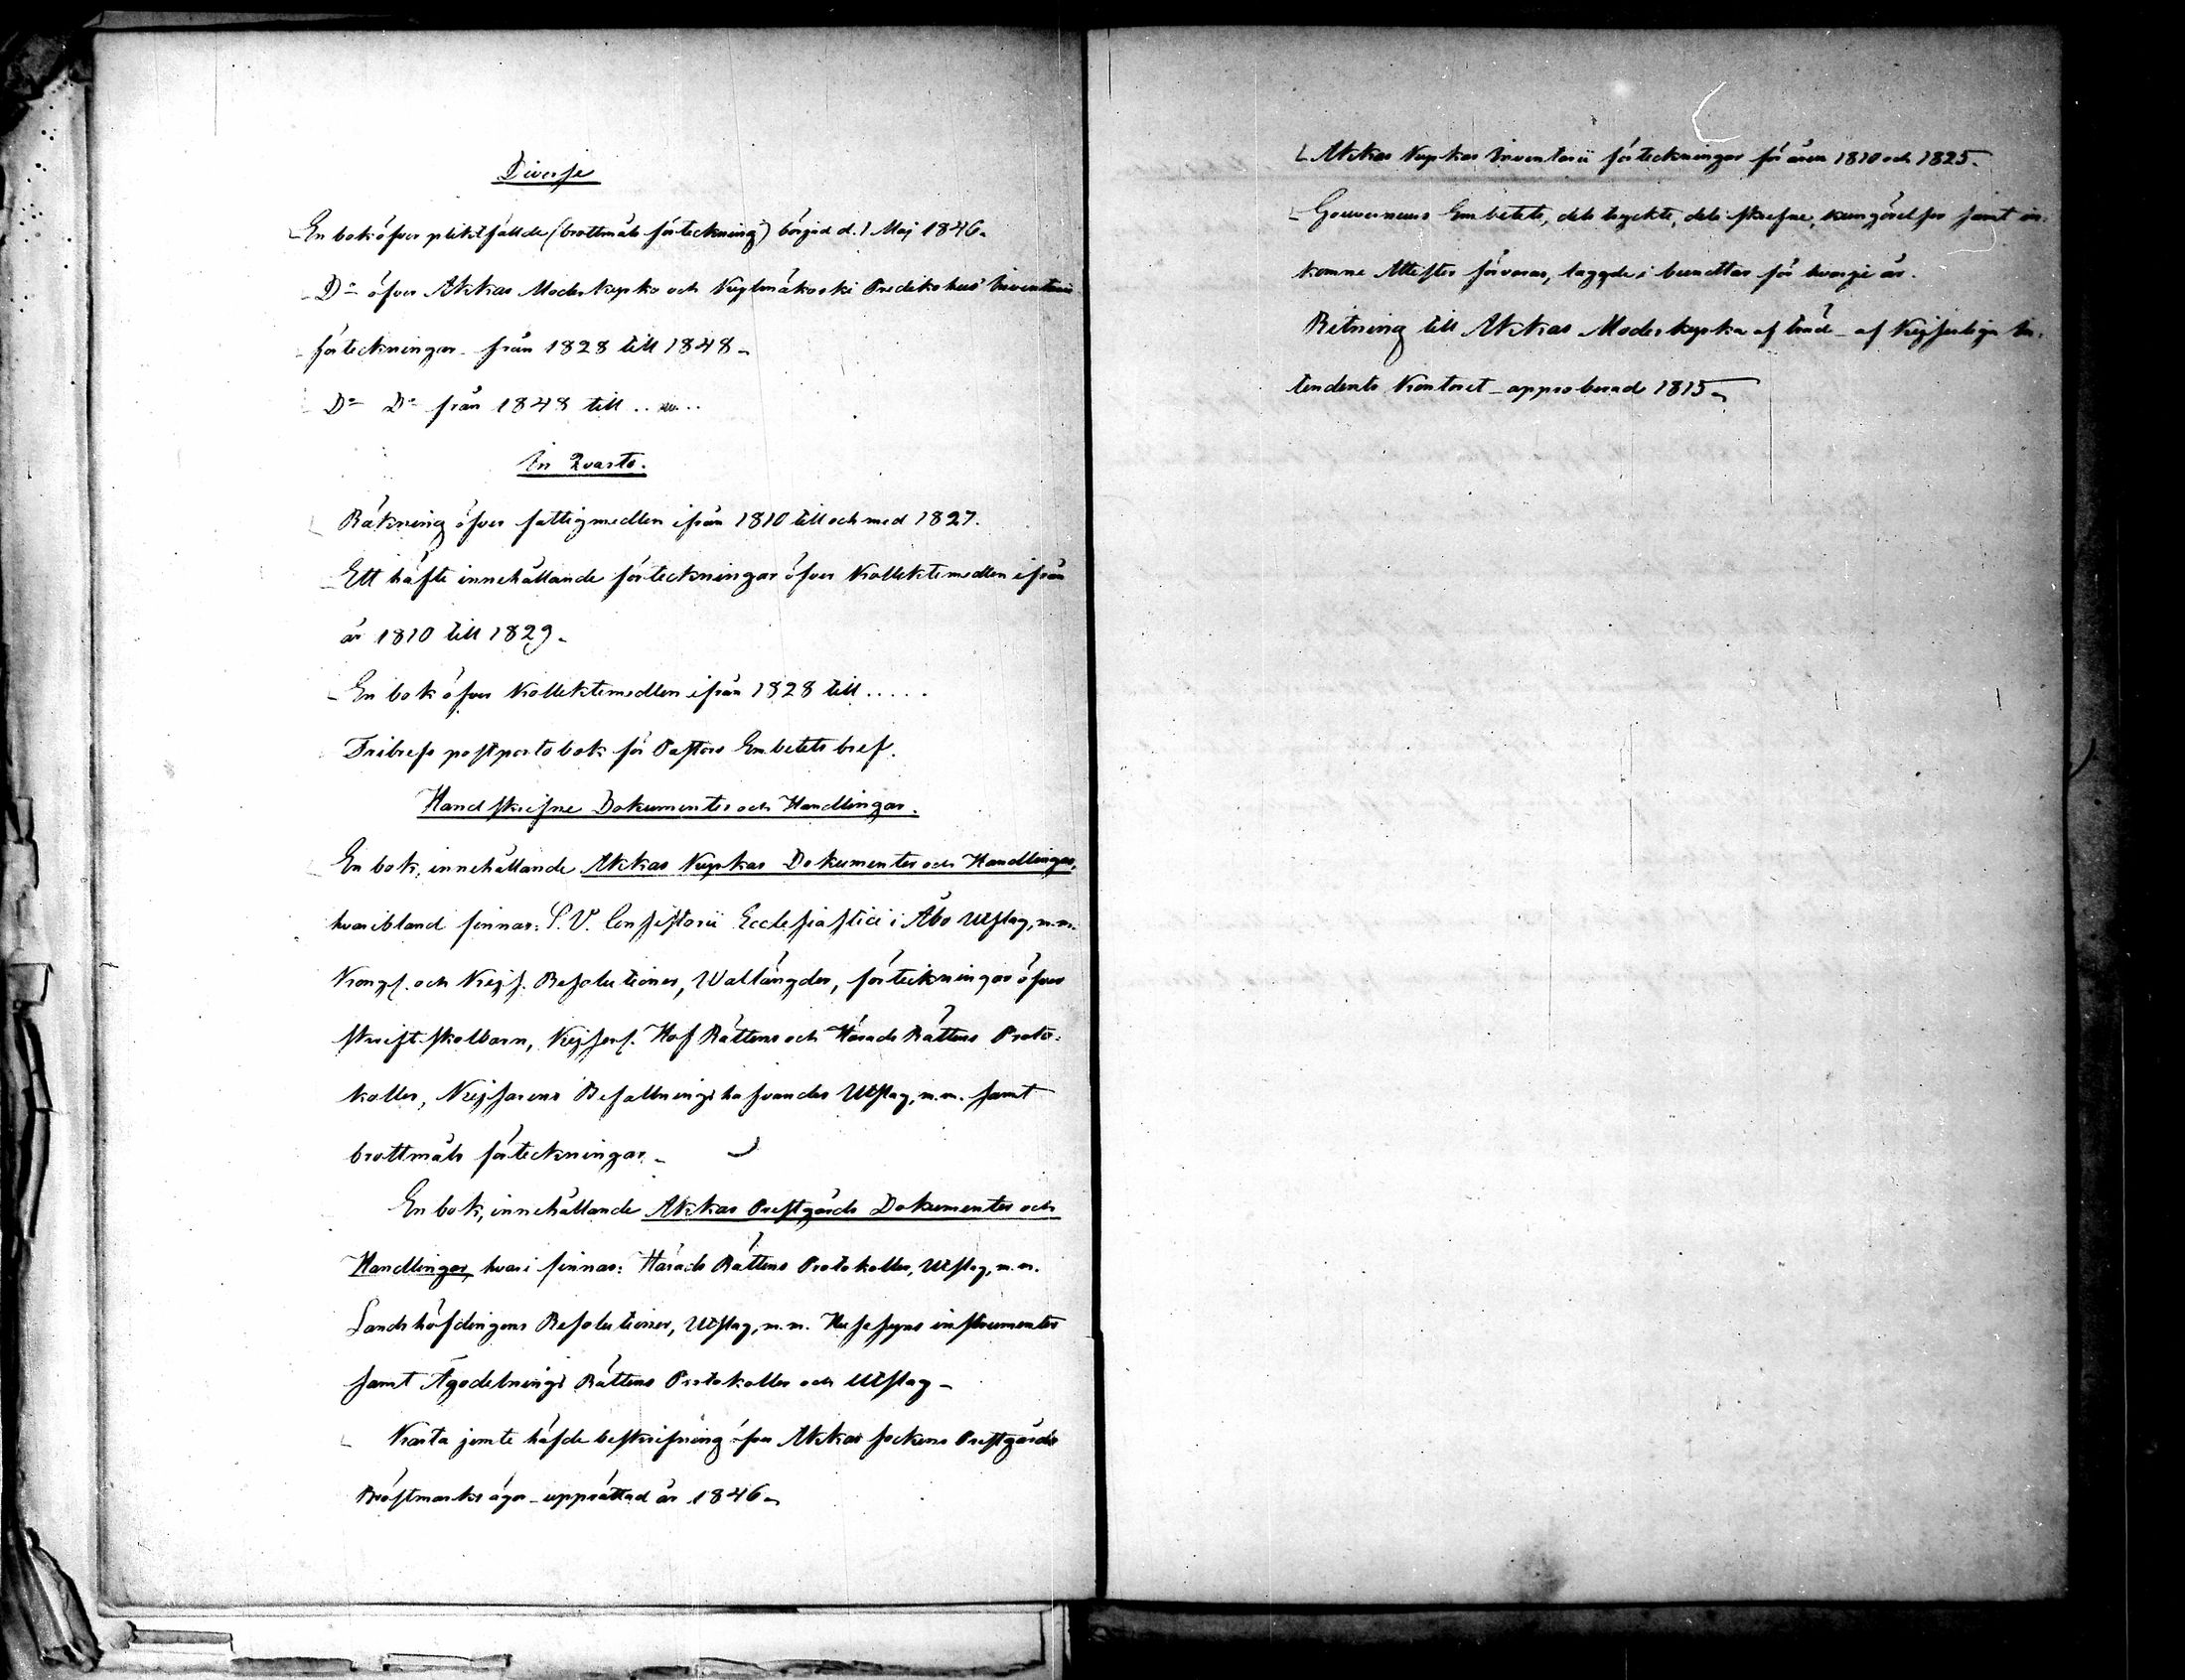 Diverse
En bok öfver pliktfällde (brottmåls förteckning) börjad d. 1 Maj 1846.
Do öfver Akkas Moderkyrko och Kylmäkoski Predikohus' Inventarii
förteckningar från 1828 till 1848.
Do Do från 1848 till .....
In Qvarto.
Räkning öfver fattigmedlen ifrån 1810 till och med 1827.
Ett häfte innehållande förteckningar öfver Kollektmedlen ifrån
år 1810 till 1829.
En bok öfver Kollektmedlen ifrån 1828 till .....
Fribrefs postporto bok för Pastors Embetets bref.
Handskrifne Dokumenter och Handlingar.
En bok, innehållande Akkas Kyrkas Dokumenter och Handlingar,
hvaribland finnas: S. V. Consistorii Ecclesiastici i Åbo Utslag, m.m.
Kongl. och Kejs. Resolutioner, Wallängder, förteckningar öfver
skriftskolbarn, Kejserl. Hof Rättens och Härads Rättens Proto-
koller, Kejsarens Befallningshafvandes Utslag, m.m. samt
brottmåls förteckningar.
En bok, innehållande Akkas Prestgårds Dokumenter och
Handlingar, hvari finnas: Härads Rättens Protokoller, Utslag, m.m.
Landshöfdingens Resolutioner, Utslag, m.m. Husesyns instrumenter
samt Ägodelnings Rättens Protokoller och Utslag.
Karta jemte häfde beskrifning öfver Akkas sockens Prestgårds
år 1846.
Akkas Kyrkas Inventarii förteckningar för åren 1810 och 1825.
Gouverneurs Embetets, dels tryckte, dels skrefne, kungörelser samt in-
komne Attester förvaras, lagde i bundtar för hvarje år.
Ritning till Akkas Moderkyrka af träd af Kejserliga In-
tendents Kontoret approberad 1815.